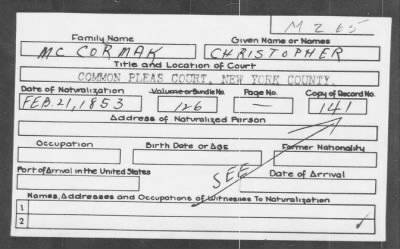 M 265
Family Name Given Name or Names
MC CORMAK CHRISTOPHER
Title and Location of Court
COMMON PLEAS COURT, NEW YORK COUNTY.
Date of Naturalization Volume or Bundle No. Page No. Copy of Record No.
FEB. 21, 1853 126 — 141
Address of Naturalized Person
Occupation Birth Date or Age Former Nationality
Port of Arrival in the United States SEE Date of Arrival
Names, Addresses and Occupations of Witnesses To Naturalization
1
2 ✓